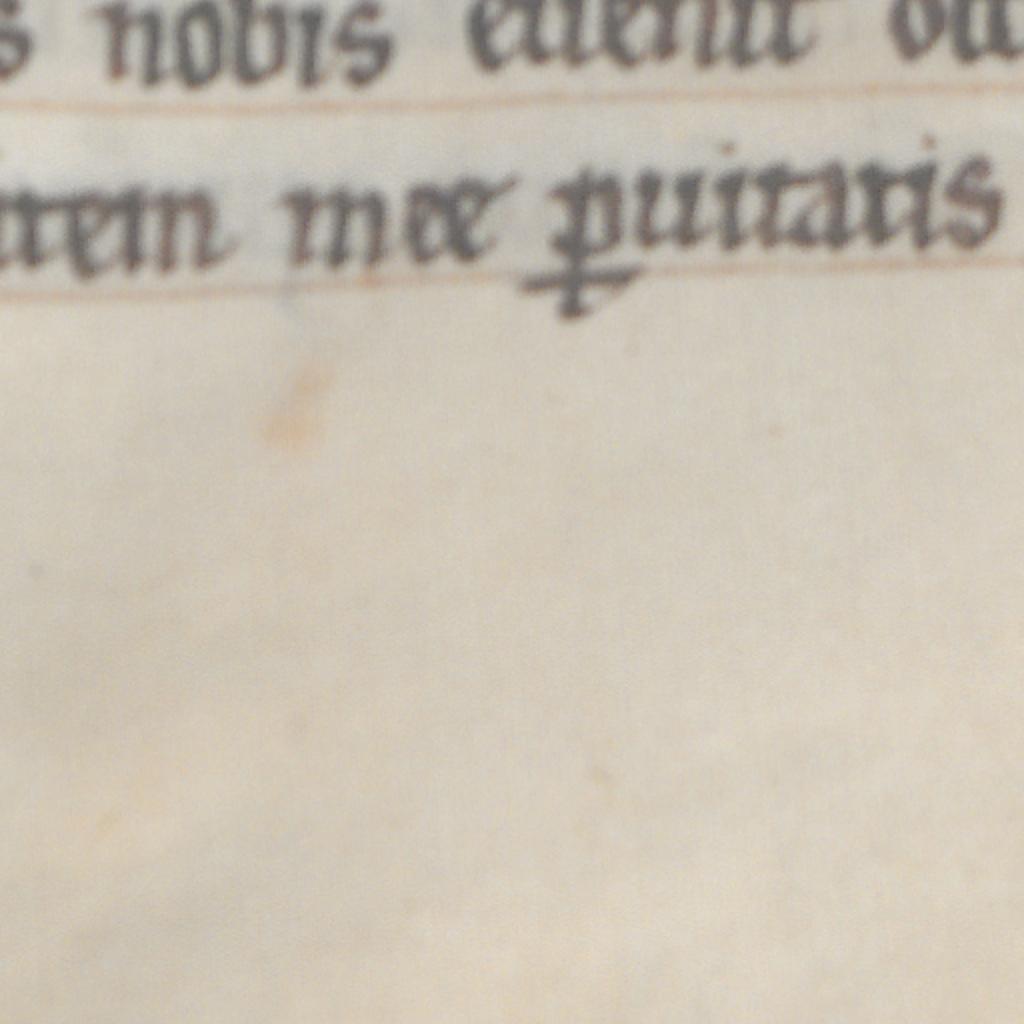 s nobis euenit
tem mee ꝑuitatis